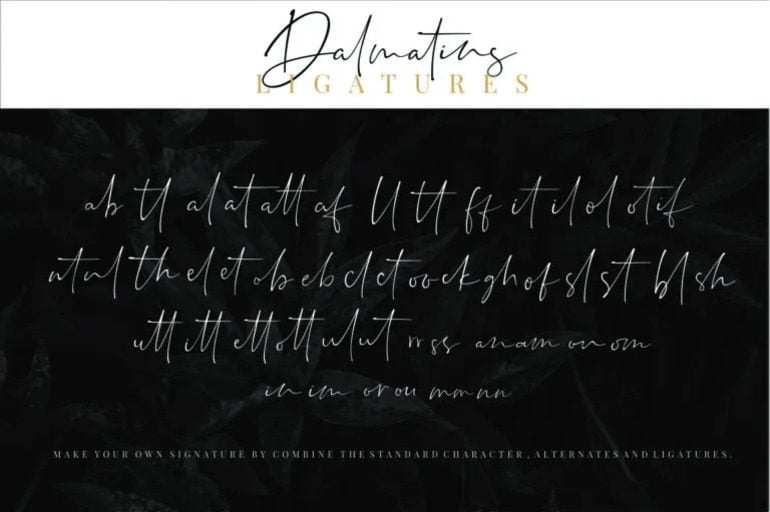 Dalmatins
LIGATURES
ab tl al at att af ll tt ff it il ol ot if
nt nl th el et ob eb cl ct ov ck gh of sl st bl sh
utt itt ett ott ul ut rr ss an am on om
in im or ou mm nn
MAKE YOUR OWN SIGNATURE BY COMBINE THE STANDARD CHARACTER, ALTERNATES AND LIGATURES.